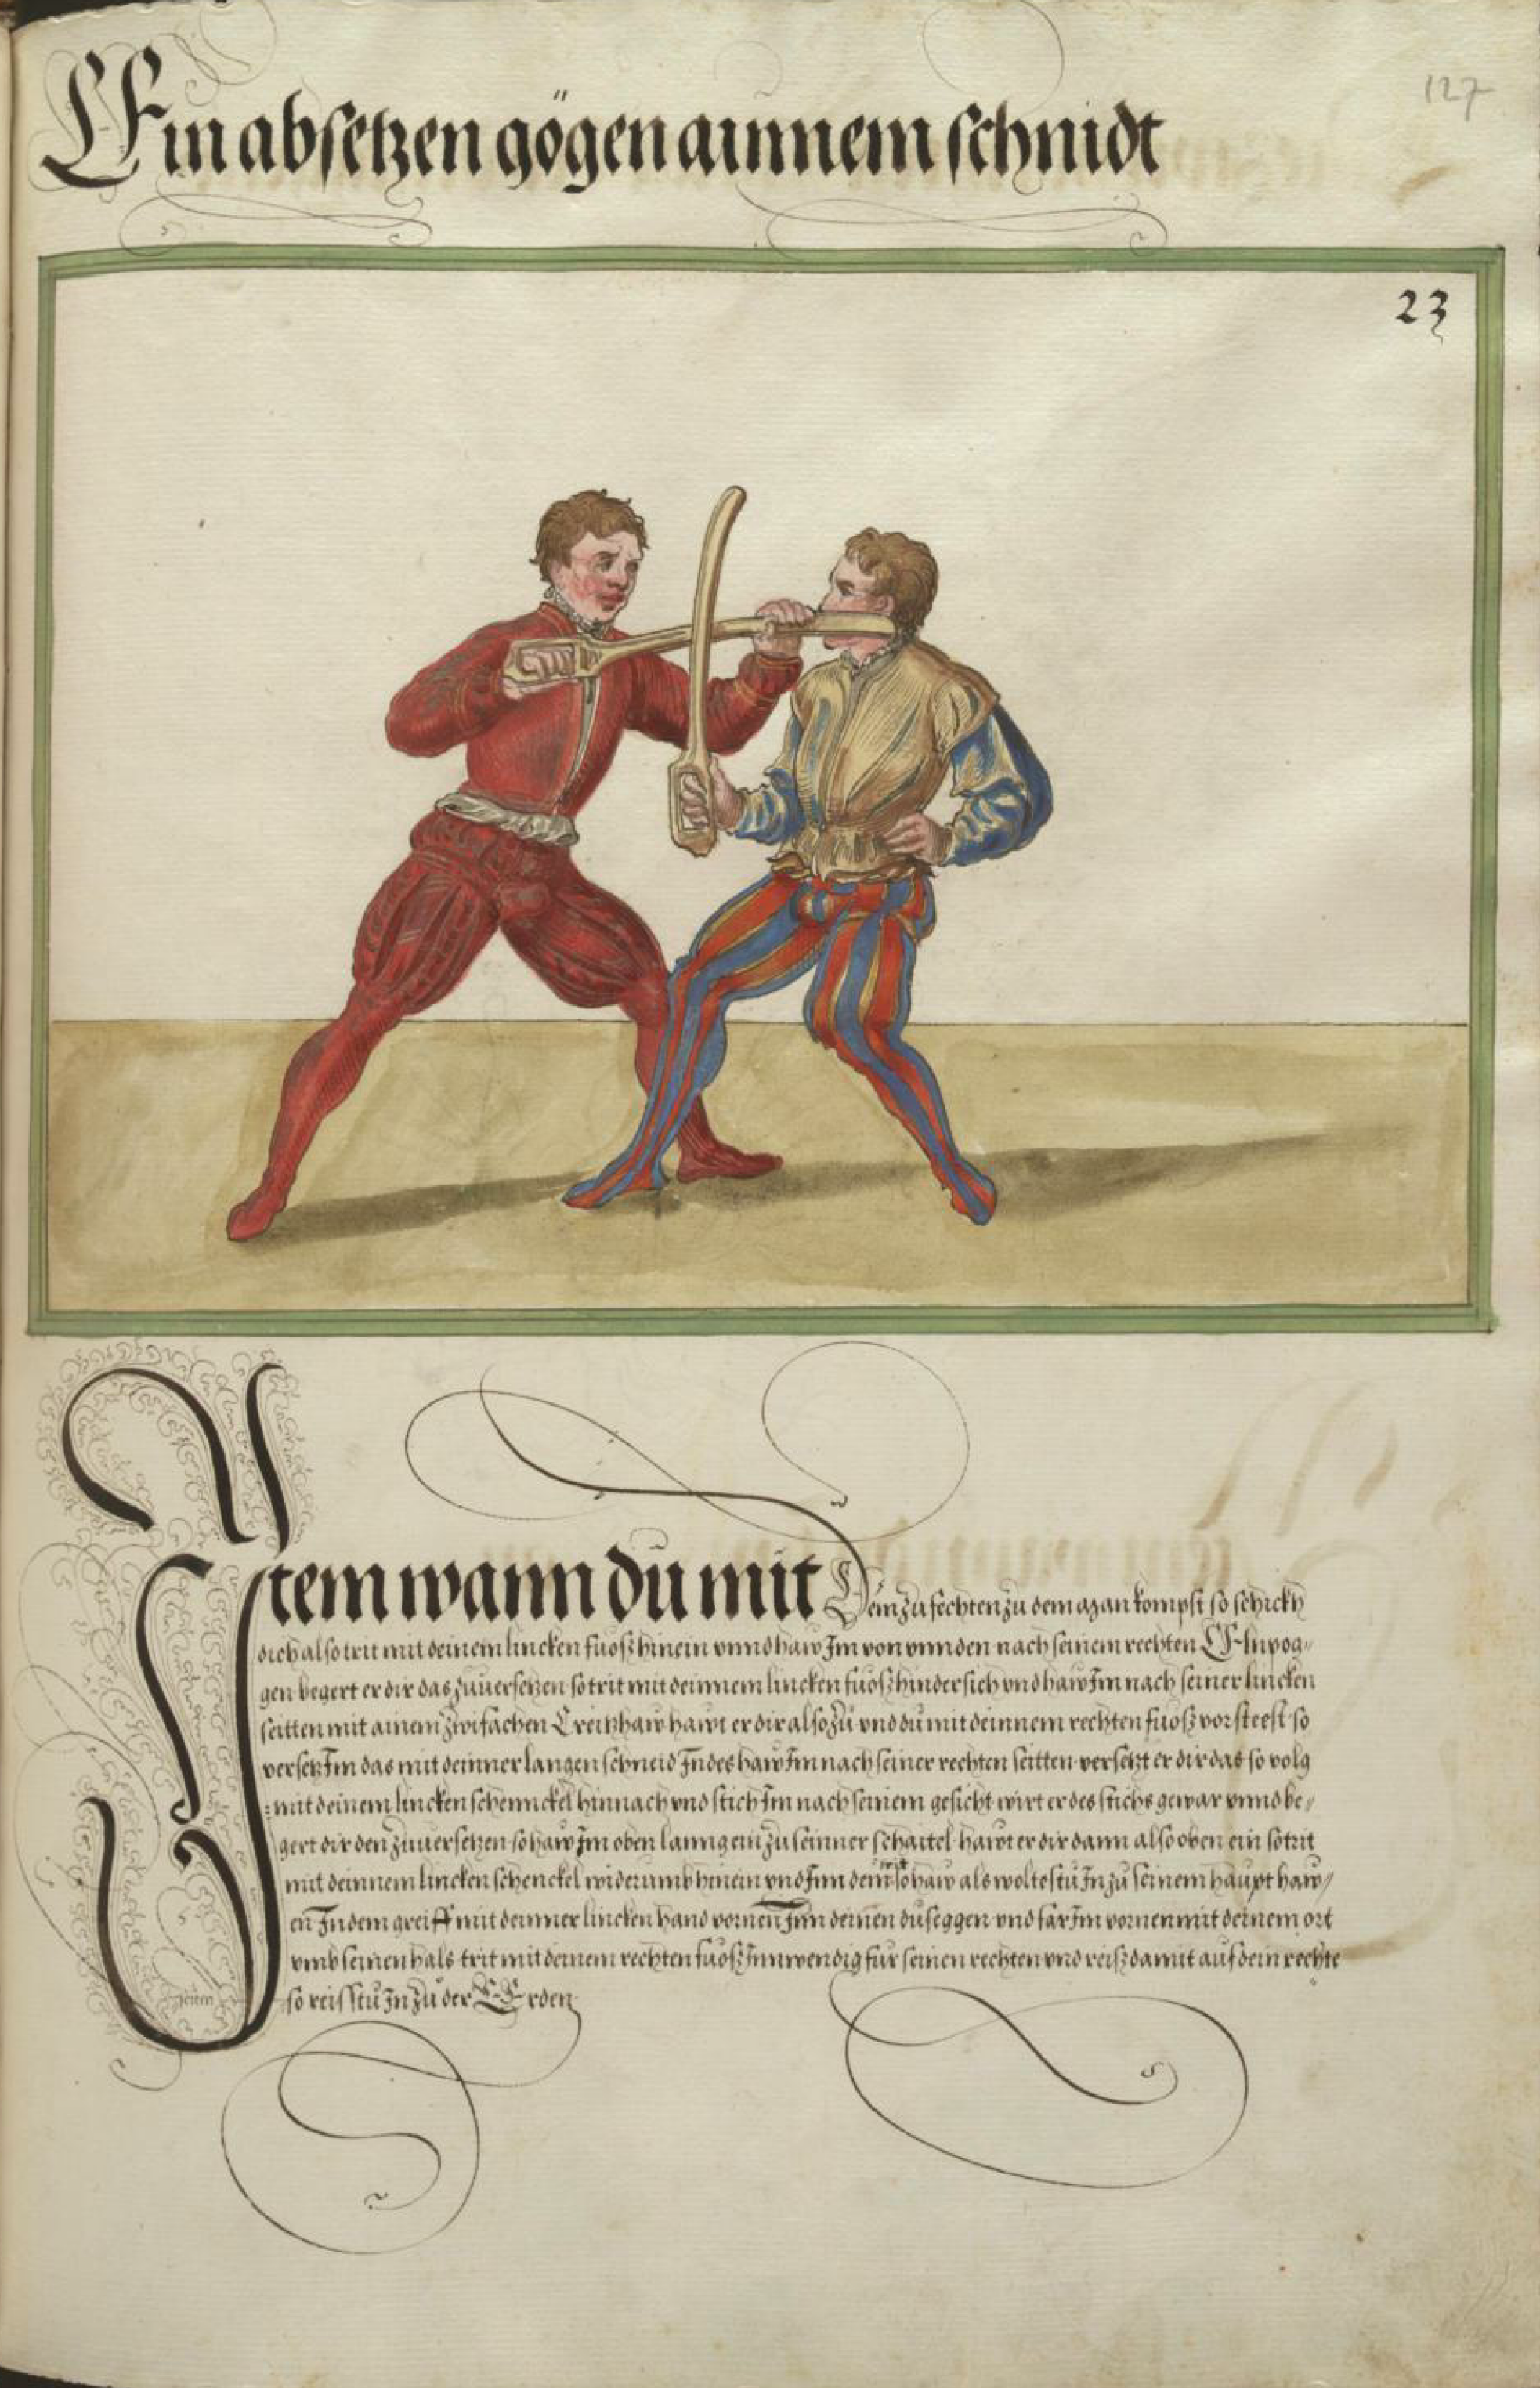 127
Ein absetzen gögen ainnem schnidt
23
Item wann du mit Dem zufechten zu dem man kompst so schickh
dich also trit mit deinem lincken fuosz hinein vnnd haw Im von vnnden nach seinem rechten Elnpog=
gen begert er dir das zuuersetzen so trit mit deinnem lincken fuosz hindersich vnd haw Im nach seiner lincken
seitten mit ainem zwifachen Creitzhaw hawt er dir also zu vnd du mit deinnem rechten fuosz vorsteest so
versetz Im das mit deinner langen schneid Indes haw Im nach seiner rechten seitten versetzt er dir das so volg
mit deinem lincken schennckel hinnach vnd stich Im nach seinem gesicht wirt er des stichs gewar vnnd be=
gert dir den zuuersetzen so haw Im oben lanng ein zu seinner schaitel hawt er dir dann also oben ein so trit
mit deinnem lincken schenckel widerumb hinein vnd Inn dem so haw als woltestu In zu seinem haupt haw=
en Indem greiff mit deinner lincken hand vornen Inn deinen duseggen vnd far Im vornen mit deinem ort
vmb seinen hals trit mit deinem rechten fuosz Innwendig für seinen rechten vnd reisz damit auf dein rechte
seiten so reisstu In zu der Erden